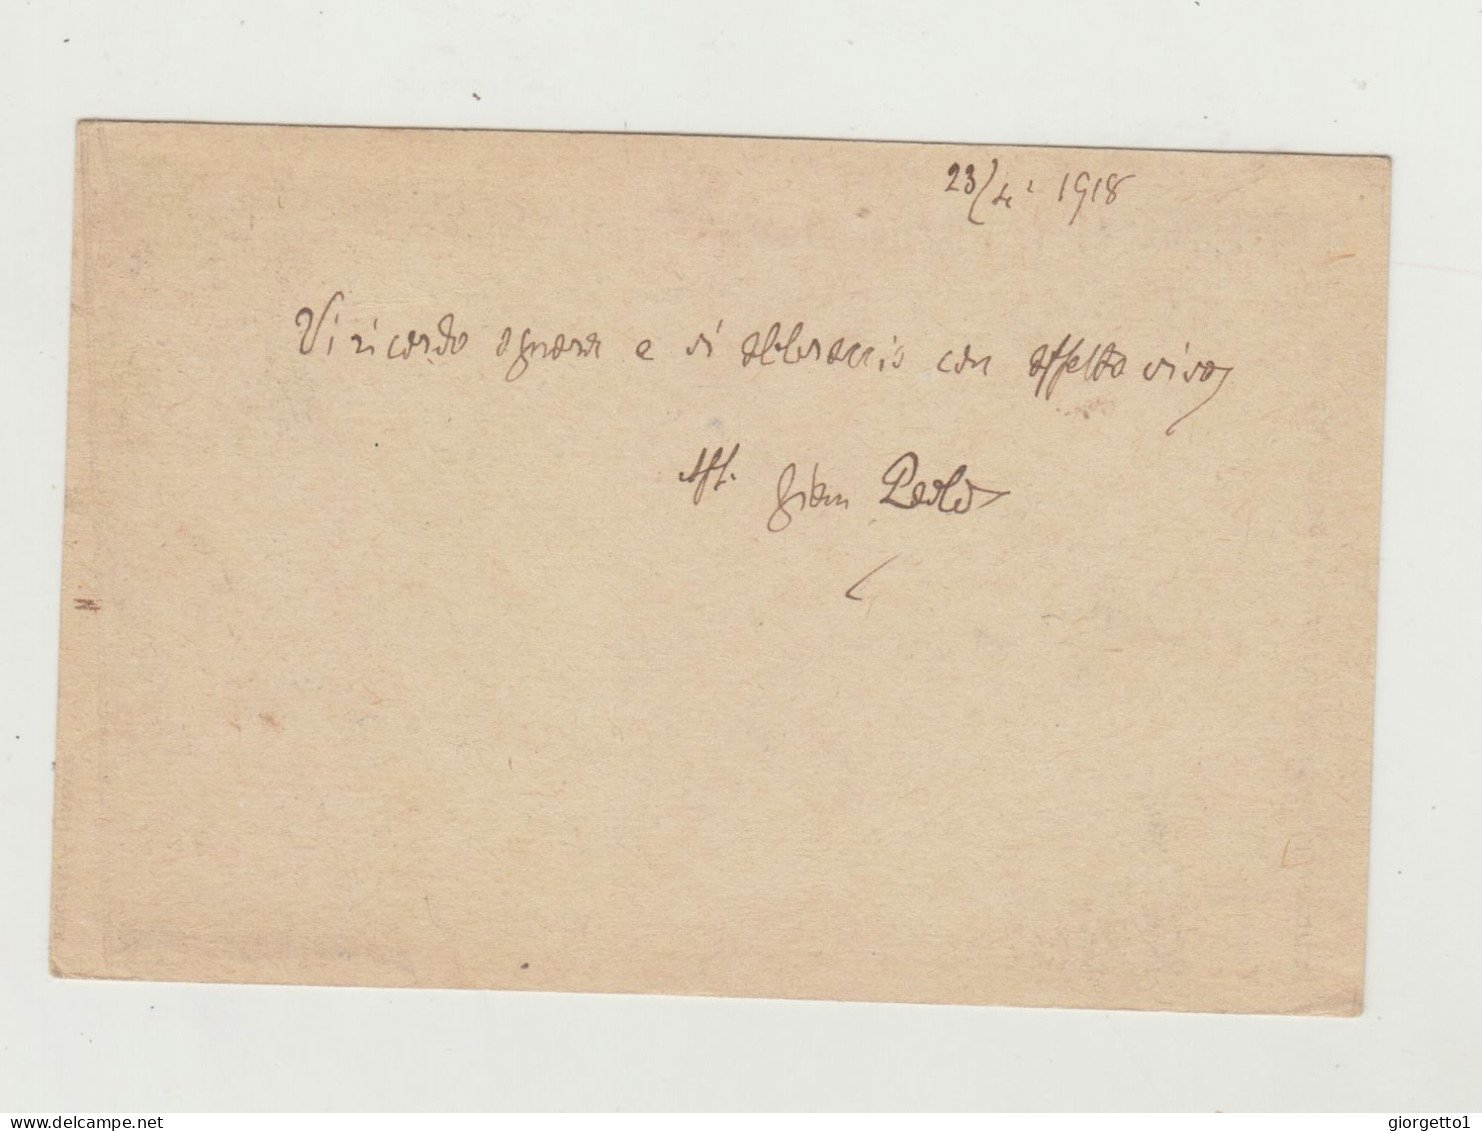 23/4º 1918
Vi ricordo ognora e vi abbraccio con affetto vivo
Aff. Gian Paolo
www.delcampe.net
giorgetto1